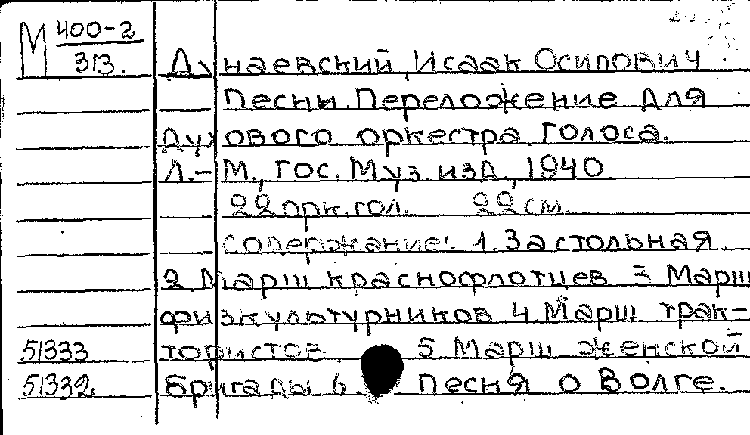 М 400-2
313.
Дунаевский, Исаак Осипович
Песни. Переложение для
духового оркестра. Голоса.
Л.-М., Гос. Муз. изд., 1940.
22 орк. гол. 22 см.
Содержание: 1. Застольная.
2 Марш краснофлотцев 3 Марш
физкультурников 4 Марш трак-
51333 тористов 5 Марш женской
51332 бригады 6. Песня о Волге.